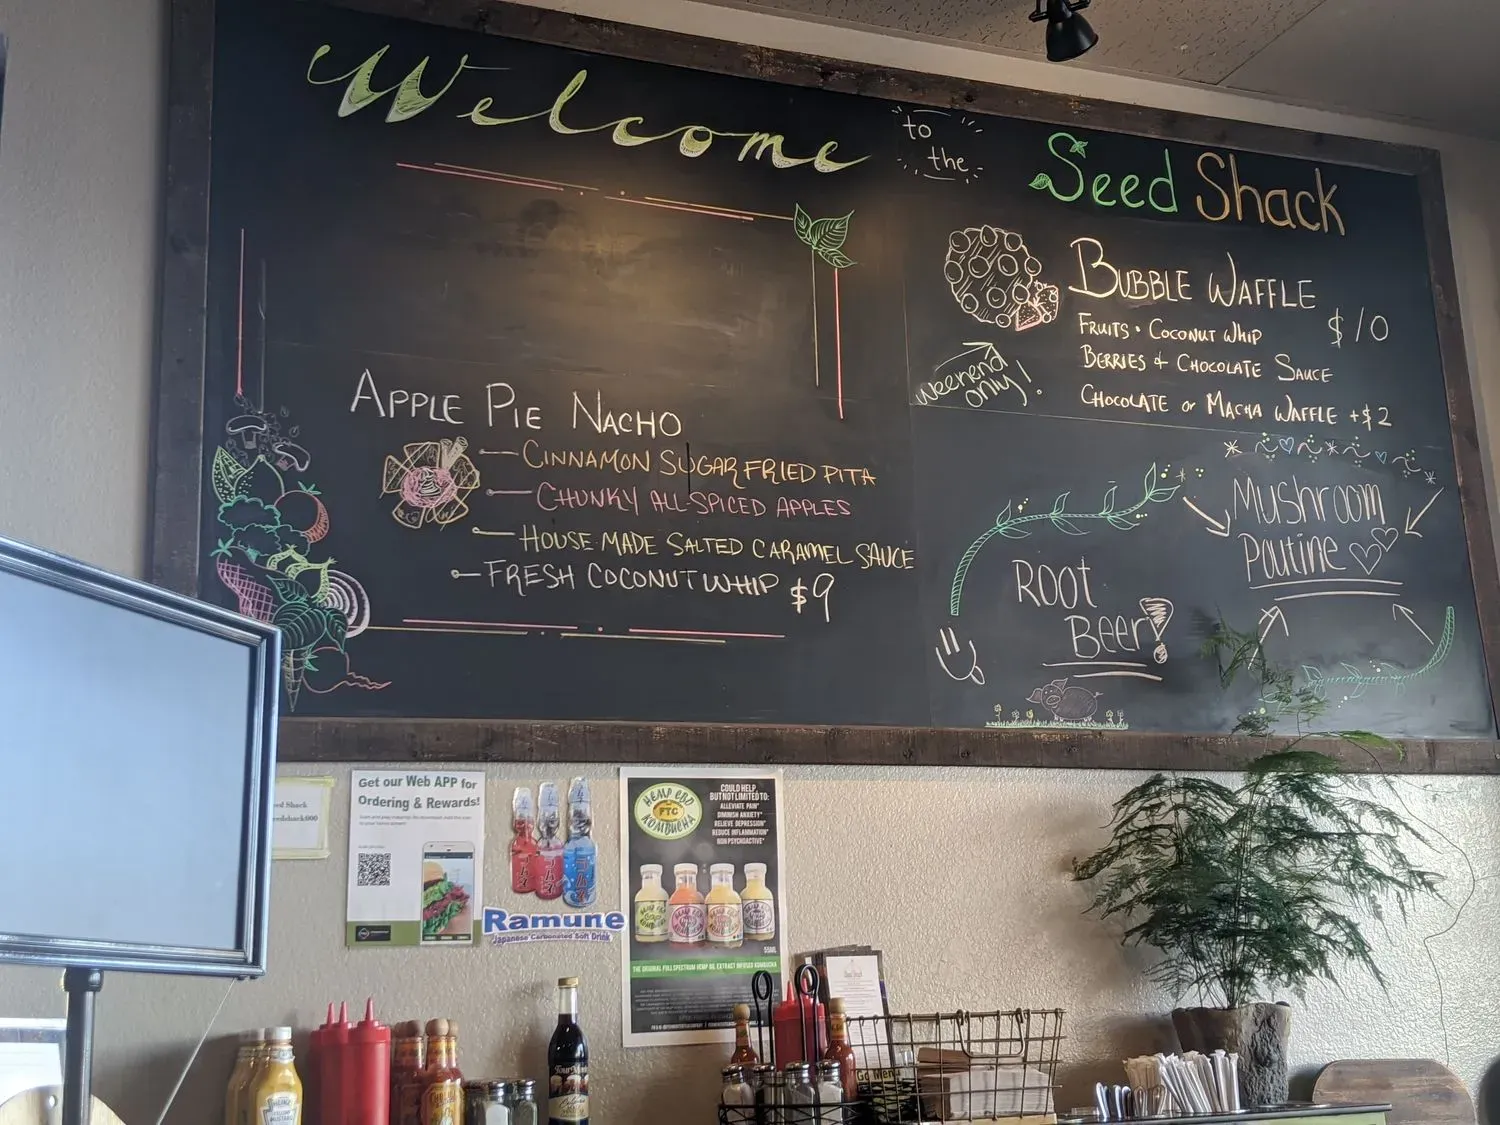 Welcome
to
the
Seed Shack
BUBBLE WAFFLE
$10
FRUITS • COCONUT WHIP
BERRIES & CHOCOLATE SAUCE
CHOCOLATE or MACHA WAFFLE +$2
weekend
only!
APPLE PIE NACHO
CINNAMON SUGAR FRIED PITA
CHUNKY ALL-SPICED APPLES
HOUSE-MADE SALTED CARAMEL SAUCE
FRESH COCONUT WHIP $9
ROOT
Beer!
Mushroom
Poutine
Seed Shack
Get our Web APP for
Ordering & Rewards!
ラムネ
Ramune
Japanese Carbonated Soft Drink
HEMP CBD
FTC
KOMBUCHA
COULD HELP
BUT NOT LIMITED TO:
ALLEVIATE PAIN*
DIMINISH ANXIETY*
RELIEVE DEPRESSION*
REDUCE INFLAMMATION*
NON PSYCHOACTIVE*
THE ORIGINAL FULL SPECTRUM HEMP OIL EXTRACT INFUSED KOMBUCHA
HEINZ